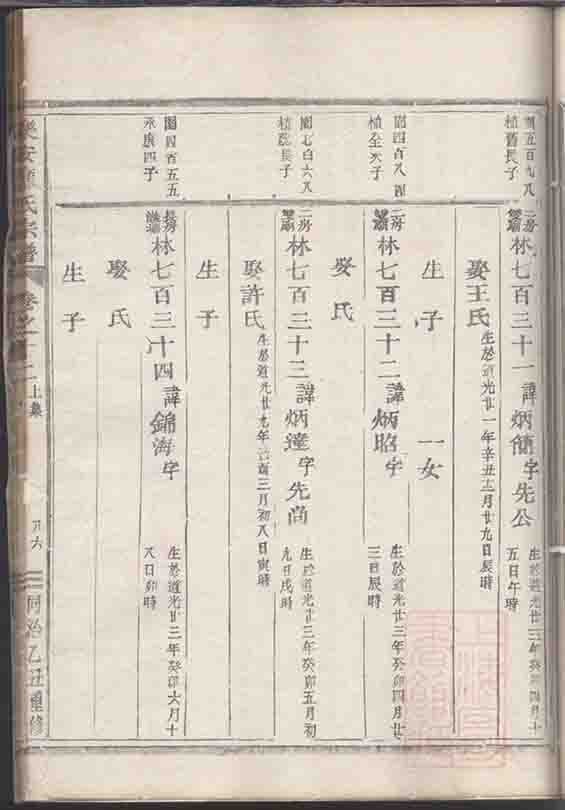 植舊長子
二房
林七百三十一諱炳簡字先公
生於道光廿三年癸卯四月十
五日午時
娶王氏
生於道光廿一年辛丑十二月廿九日辰時
生子
一女
二房
林七百三十二諱炳昭字
生於道光廿三年癸卯四月廿
三日辰時
娶氏
長子
二房
林七百三十三諱炳達字先尚
生於道光廿三年癸卯五月初
九日戌時
娶許氏
生於道光廿九年
三月初八日寅時
生子
園四百五五
四子
長房
林七百三十四諱錦海字
生於道光廿三年癸卯六月十
八日卯時
娶氏
生子
氏宗譜
卷之十二
上集
同治乙丑重修